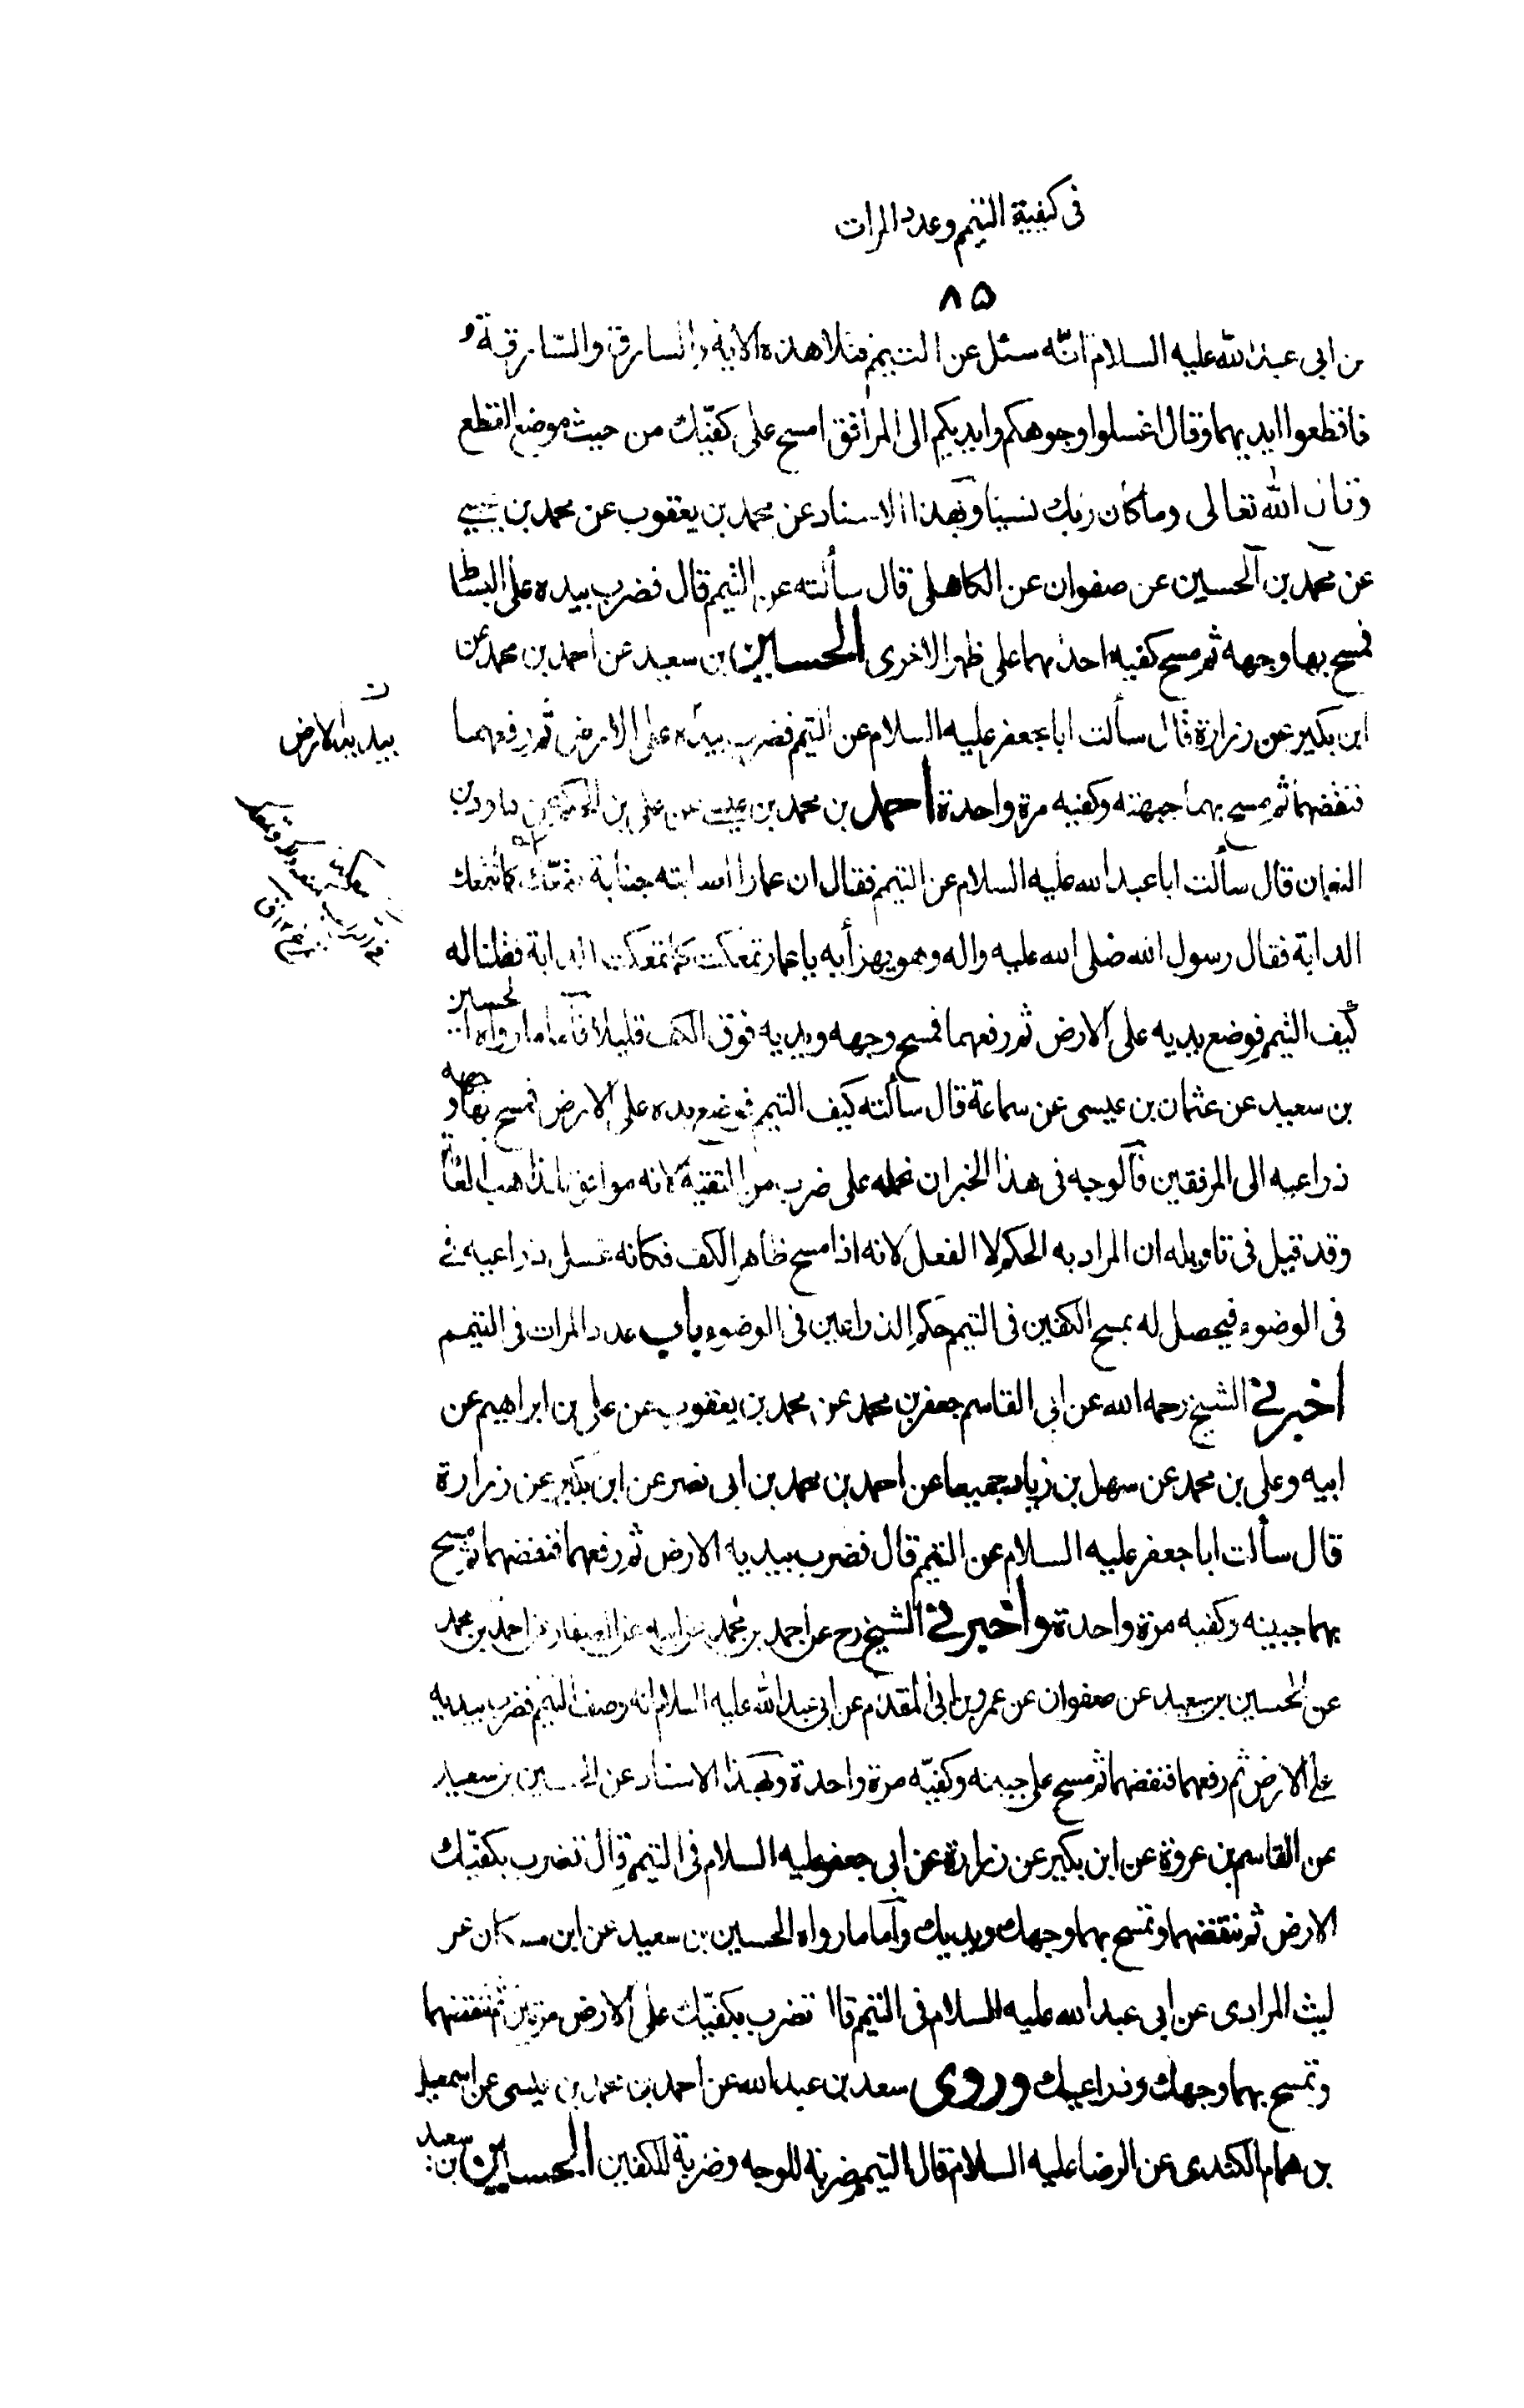 فى كيفية التيمم وعدد المرات
٨٥
عن ابى عبد الله عليه السلام انّه سئل عن التيمم فتلا هذه الاية والسارق والسّارقة و
فاقطعوا ايديهما وقال اغسلوا وجوهكم وايديكم الى المرافق امسح على كفّيك من حيث موضع القطع
وقال الله تعالى وما كان ربك نسيا وبهذا الاسناد عن محمد بن يعقوب عن محمد بن يحيى
عن محمد بن الحسين عن صفوان عن الكاهلى قال سألته عن التيمم قال فضرب بيده على البساط
فمسح بها وجهه ثم مسح كفيه احدٰيهما على ظهر الاخرى الحسين بن سعيد عن احمد بن محمد عن
ابن بكير عن زرارة قال سألت ابا جعفر عليه السلام عن التيمم فضرب بيده على الارض ثم رفعهما
فنفضهما ثم مسح بهما جبهته وكفيه مرة واحدة احمد بن محمد بن عيسى عن على بن الحكم عن داود بن
النعمان قال سألت ابا عبد الله عليه السلام عن التيمم فقال ان عمارا اصابته جنابة فتمعّك كما تتمعك
الدابة فقال رسول الله صلى الله عليه واله وهو يهزأ به يا عمار تمعكت كما تمعكت الدابة فقلنا له
كيف التيمم فوضع يديه على الارض ثم رفعهما فمسح وجهه ويديه فوق الكف قليلا فأما ما رواه الحسين
بن سعيد عن عثمان بن عيسى عن سماعة قال سألته كيف التيمم فوضع يده على الارض فمسح بها وجهه
ذراعيه الى المرفقين فالوجه فى هذا الخبر ان نحمله على ضرب من التقية لانه موافق لمذاهب العامّة
وقد قيل فى تاويله ان المراد به الحكم لا الفعل لانه اذا مسح ظاهر الكف فكانه غسل ذراعيه فى
فى الوضوء فيحصل له بمسح الكفين فى التيمم حكم الذراعين فى الوضوء باب عدد المرات فى التيمم
اخبرنى الشيخ رحمه الله عن ابى القاسم جعفر بن محمد عن محمد بن يعقوب عن على بن ابراهيم عن
ابيه وعلى بن محمد عن سهل بن زياد جميعا عن احمد بن محمد بن ابى نصر عن ابن بكير عن زرارة
قال سألت ابا جعفر عليه السلام عن التيمم قال فضرب بيديه الارض ثم رفعهما فنفضهما ثم مسح
بهما جبينه وكفيه مرة واحدة واخبرنى الشيخ رح عن احمد بن محمد عن ابيه عن الصفار عن احمد بن محمد
عن الحسين بن سعيد عن صفوان عن عمرو بن ابى المقدام عن ابى عبد الله عليه السلام انه وصف التيمم فضرب بيديه
على الارض ثم رفعهما فنفضهما ثم مسح على جبينه وكفيّه مرة واحدة وبهذا الاسناد عن الحسين بن سعيد
عن القاسم بن عروة عن ابن بكير عن زرارة عن ابى جعفر عليه السلام فى التيمم قال تضرب بكفّيك
الارض ثم تنفضهما وتمسح بهما وجهك ويديك وأما ما رواه الحسين بن سعيد عن ابن مسكان عن
ليث المرادى عن ابى عبد الله عليه السلام فى التيمم قال تضرب بكفّيك على الارض مرتين ثم تنفضهما
وتمسح بهما وجهك وذراعيك وروى سعد بن عبد الله عن احمد بن محمد بن عيسى عن اسمعيل
بن همام الكندى عن الرضا عليه السلام قال التيمم ضربة للوجه وضربة للكفين الحسين بن سعيد
بيديه الارض